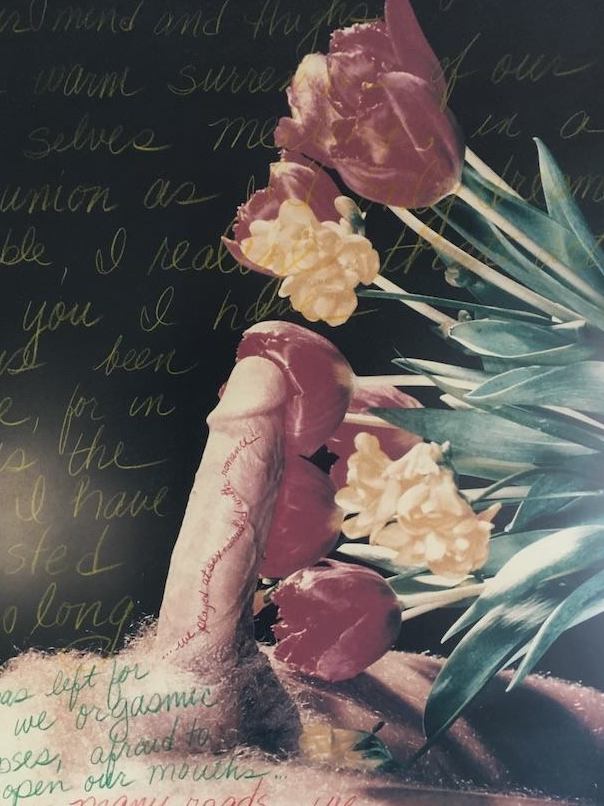 mind and thighs
warm surre of our
selves me in a
union as
ble, I real that
you I ha
us been
e, for in
is the
I have
sted
so long
...we played at sex masked with romance!
as left for
we orgasmic
oses, afraid to
open our mouths...
many roads we